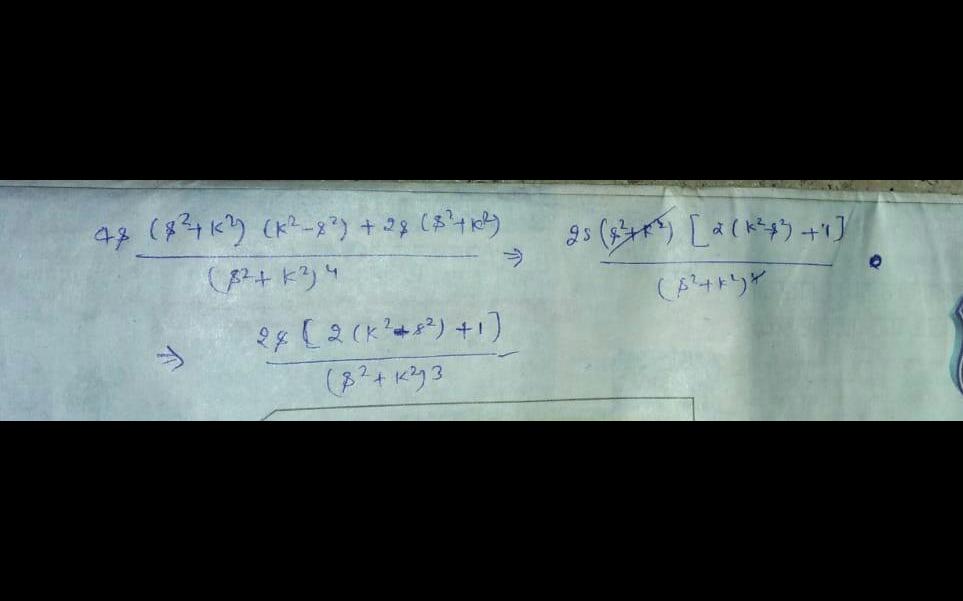 4s (s²+k²) (k²-s²) + 2s (s²+k²) / (s²+k²)⁴ ⇒ 2s (s²+k²) [2(k²-s²) +1] / (s²+k²)⁴
⇒ 2s [2(k²-s²) +1] / (s²+k²)³